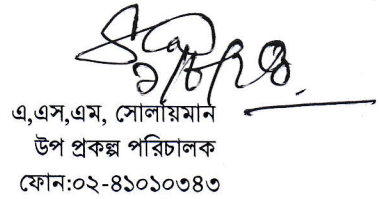 এ,এস,এম, সোলায়মান
উপ প্রকল্প পরিচালক
ফোন:০২-৪১০১০৩৪৩